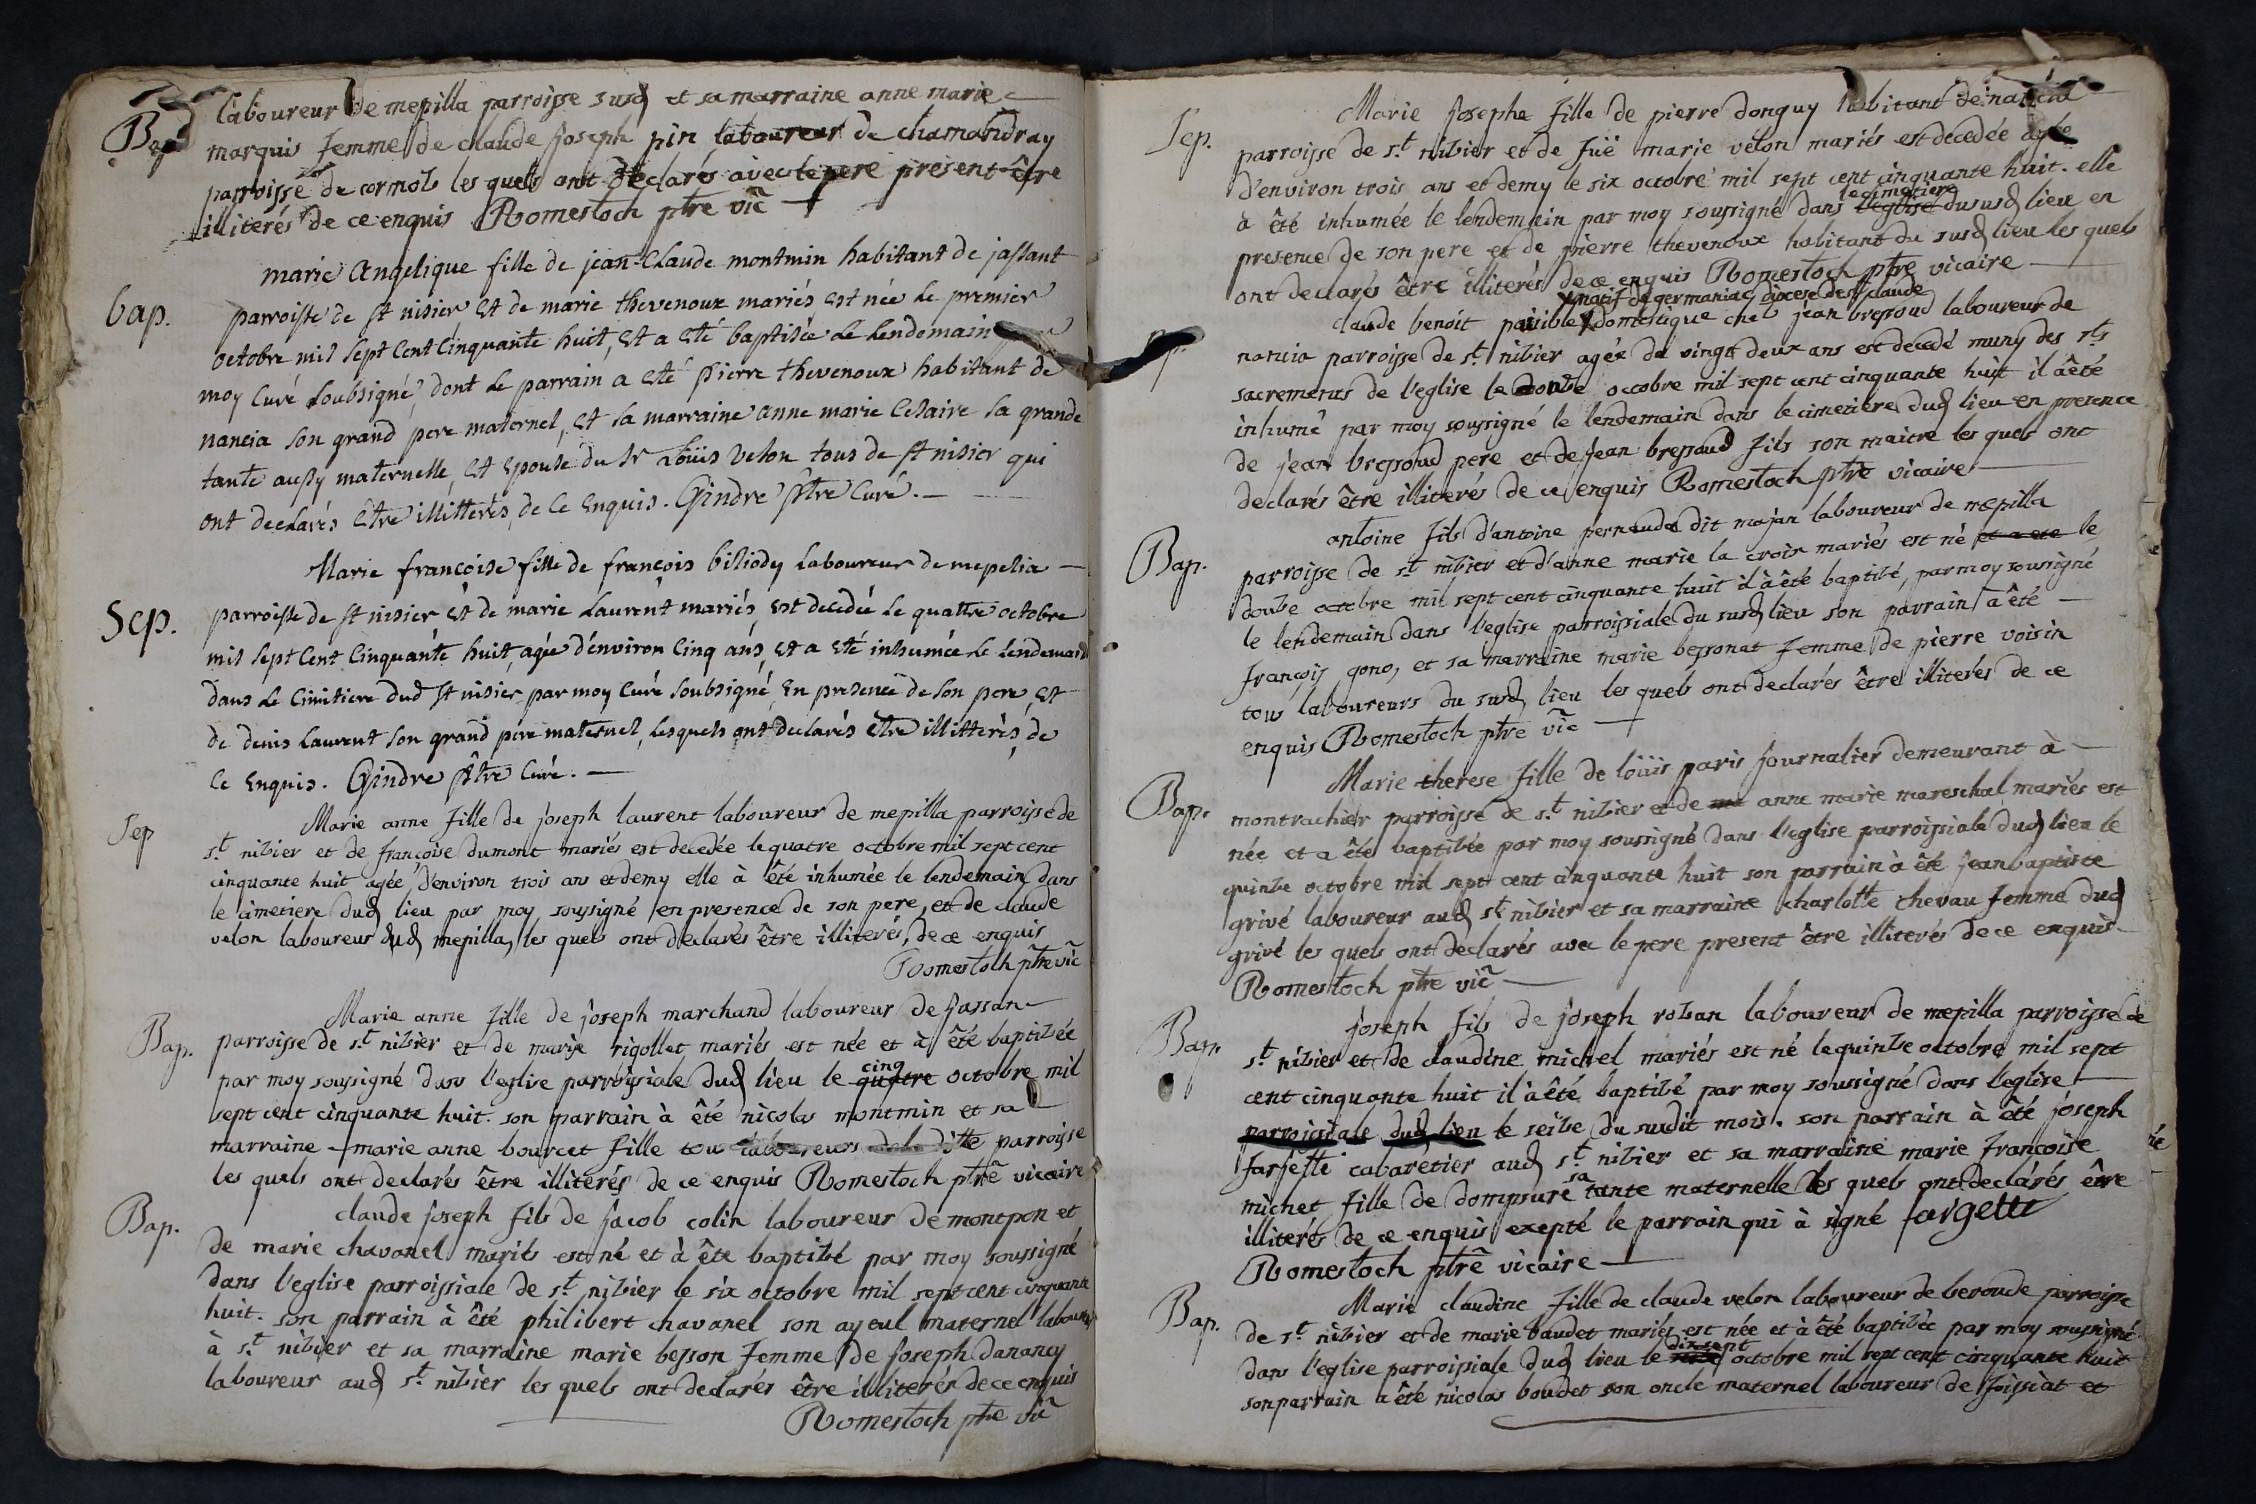 Bap
laboureur de mepilla parroisse susd et sa marraine anne marie
marquis femme de claude joseph pin laboureur de chamandray
parroisse de cormoz les quels ont declarés avec le pere present être
illiterés de ce enquis Romestoch ptre vic
bap.
marie Angelique fille de jean-Claude montmin habitant de jassant
parroisse de st nisier et de marie thevenoux mariés, est née le premier
octobre mil sept cent cinquante huit, et a eté baptisée le lendemain
moy curé soubsigné, dont le parrain a eté pierre thevenoux habitant de
nancia son grand pere maternel, et la marraine anne marie Cesaire sa grande
tante aussy maternelle, et epouse du sr Loüis velon tous de st nisier qui
ont declarés être illitterés, de ce enquis. Gindre ptre curé.
Sep.
Marie françoise fille de françois biliody laboureur de mepelia
parroisse de st nisier et de marie Laurent mariés, est decedée le quattre octobre
mil sept cent cinquante huit, agée d'environ cinq ans, et a eté inhumée le lendemain
dans le cimitiere dud st nisier par moy curé soubsigné, en presence de son pere, et
de denis Laurent son grand pere maternel, lesquels ont declarés être illitterés, de
ce enquis. Gindre ptre curé.
Sep
Marie anne fille de joseph laurent laboureur de mepilla parroisse de
st nibier et de françoise dumont mariés est decedée le quatre octobre mil sept cent
cinquante huit agée d'environ trois ans et demy elle à été inhumée le lendemain dans
le cimetiere dud lieu par moy soussigné en presence de son pere, et de claude
velon laboureur dud mepilla, les quels ont declarés être illiterés, de ce enquis
Romestoch ptre vic
Bap.
Marie anne fille de joseph marchand laboureur de jassan
parroisse de st nibier et de marie rigollet mariés est née et à été baptibée
par moy soussigné dans l'eglise parroissiale dud lieu le quatre cinq octobre mil
sept cent cinquante huit. son parrain à été nicolas montmin et sa
marraine marie anne bourcet fille tou laboureurs de la ditte parroisse
les quels ont declarés être illiterés de ce enquis Romestoch ptre vicaire
Bap.
claude joseph fils de jacob colin laboureur de montpon et
de marie chavanel mariés est né et à été baptibé par moy soussigné
dans l'eglise parroissiale de st nibier le six octobre mil sept cent cinquante
huit. son parrain à été philibert chavanel son ayeul maternel laboureur
à st nibier et sa marraine marie besson femme de joseph danancy
laboureur aud st nibier les quels ont declarés être illiterés de ce enquis
Romestoch ptre vic
Sep.
Marie josephe fille de pierre donguy habitant de
parroisse de st nibier et de füe marie velon mariés est decedée agée
d'environ trois ans et demy le six octobre mil sept cent cinquante huit. elle
à été inhumée le lendemain par moy soussigné dans l'eglise le cimetiere du susd lieu en
presence de son pere et de pierre thevenoux habitant du susd lieu les quels
ont declarés être illiterés de ce enquis Romestoch ptre vicaire
natif de germaniac diocese de st claude
claude benoit paisible domestique chez jean bressoud laboureur de
nancia parroisse de st nibier agée de vingt deux ans est decedé muny des sts
sacrements de l'eglise le octobre mil sept cent cinquante huit il à été
inhumé par moy soussigné le lendemain dans le cimetiere dud lieu en presence
de jean bressoud pere et de jean bressoud fils son maitre les quels ont
declarés être illiterés de ce enquis Romestoch ptre vicaire
Bap.
antoine fils d'antoine pernaude dit majan laboureur de mepilla
parroisse de st nibier et d'anne marie la croix mariés est né et a ete le
doube octobre mil sept cent cinquante huit il à été baptibé, par moy soussigné
le lendemain dans l'eglise parroissiale du susd lieu son parrain à été
françois gono, et sa marraine marie bessonat femme de pierre voisin
tous laboureurs du susd lieu les quels ont declarés être illiterés de ce
enquis Romestoch ptre vic
Bap.
Marie therese fille de loüis paris journalier demeurant à
montrachier parroisse de st nibier et de anne marie mareschal mariés est
née et a été baptibée par moy soussigné dans l'eglise parroissiale dud lieu le
quinbe octobre mil sept cent cinquante huit son parrain à été jean baptiste
grivé laboureur aud st nibier et sa marraine charlotte chevau femme dud
grivé les quels ont declarés avec le pere present être illiterés de ce enquis
Romestoch ptre vic
Bap.
joseph fils de joseph roban laboureur de mepilla parroisse de
st nibier et de claudine michel mariés est né le quinbe octobre mil sept
cent cinquante huit il à été baptibé par moy soussigné dans l'eglise
parroissiale dud lieu le seibe du susdit mois. son parrain à été joseph
farjette cabaretier aud st nibier et sa marraine marie françoise
michet fille de dompsure sa tante maternelle les quels ont declarés être
illiterés de ce enquis exepté le parrain qui à signé fargette
Romestoch ptre vicaire
Bap.
Marie claudine fille de claude velon laboureur de beroude parroisse
de st nibier et de marie baudet mariés est née et à été baptibée par moy soussigné
dans l'eglise parroissiale dud lieu le dix sept octobre mil sept cent cinquante huit
son parrain a été nicolas boudet son oncle maternel laboureur de foissiat et